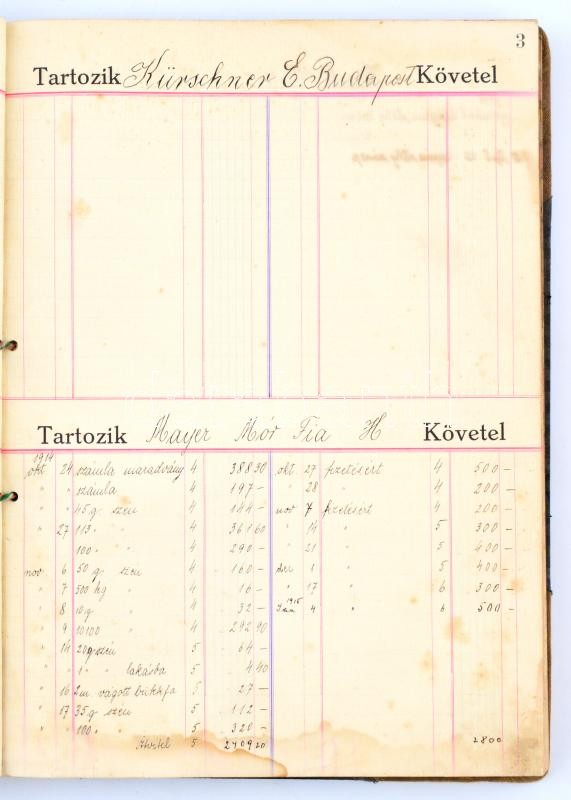 3
Tartozik Kürschner E. Budapest Követel
Tartozik Mayer Mór Fia H Követel
1914
okt. 24 számla maradvány 4 388 30 okt. 27 fizetésért 4 500 –
" " számla 4 197 – " 28 " 4 200 –
" " 45 q. szén 4 144 – nov 7 fizetésért 4 200 –
" 27 113 " " 4 361 60 " 14 " 5 300 –
" 100 " " 4 290 – " 21 " 5 400 –
nov 6 50 q. szén 4 160 – dec 1 " 5 400 –
" 7 500 kg " 4 16 – " 17 " 6 300 –
1915
" 8 10 q " 4 32 – Jan 4 " 6 500 –
" 9 10100 " 4 292 90
" 14 20 q szén 5 64 –
" " 1 " " lakásba 5 4 40
" 16 2 m. vágott bükkfa 5 27 –
" 17 35 q szén 5 112 –
" " 100 " " 5 320 –
Átvitel 5 2409 20 2800